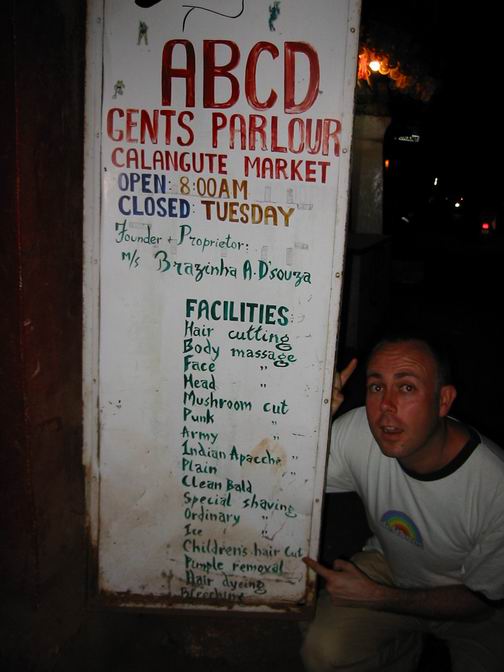 ABCD
GENTS PARLOUR
CALANGUTE MARKET
OPEN: 8:00AM
CLOSED: TUESDAY
Founder + Proprietor:
M/s Brazinha A.D'souza
FACILITIES:
Hair cutting
Body massage
Face "
Head "
Mushroom cut
Punk "
Army "
Indian Apacche "
Plain "
Clean Bald
Special shaving
Ordinary "
Ice "
Children's hair Cut
Pimple removal
Hair dyeing
Bleeching